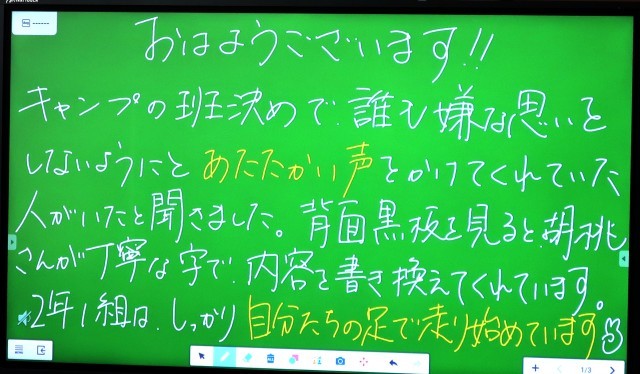 おはようございます!!
キャンプの班決めで、誰も嫌な思いを
しないようにと あたたかい声をかけてくれていた
人がいたと聞きました。背面黒板を見ると、胡桃
さんが丁寧な字で、内容を書き換えてくれています。
2年1組は、しっかり 自分たちの足で走り始めています。
1/3